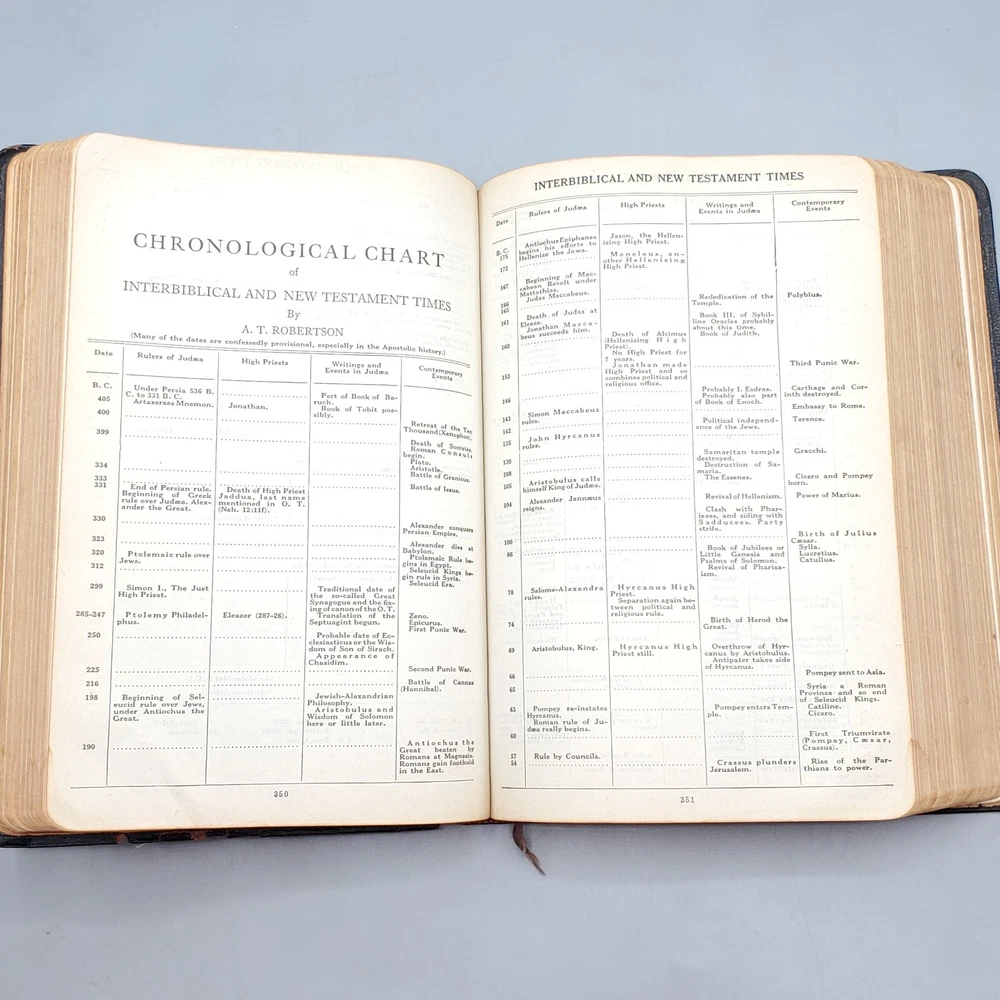 CHRONOLOGICAL CHART
of
INTERBIBLICAL AND NEW TESTAMENT TIMES
By
A. T. ROBERTSON
(Many of the dates are confessedly provisional, especially in the Apostolic history.)
Date Rulers of Judæa High Priests Writings and Events in Judæa Contemporary Events
B. C.
405
Under Persia 536 B.
C. to 331 B. C.
Artaxerxes Mnemon.
Jonathan.
Part of Book of Ba-
ruch.
Book of Tobit pos-
sibly.
400
Retreat of the Ten
Thousand (Xenophon).
399
Death of Socrates.
Roman Consuls
begin.
Plato.
Aristotle.
334
Battle of Granicus.
333
Battle of Issus.
331
End of Persian rule.
Beginning of Greek
rule over Judæa. Alex-
ander the Great.
Death of High Priest
Jaddua, last name
mentioned in O. T.
(Neh. 12:11f).
330
Alexander conquers
Persian Empire.
323
Alexander dies at
Babylon.
320
Ptolemaic rule over
Jews.
Ptolemaic Rule be-
gins in Egypt.
312
Seleucid Kings be-
gin rule in Syria.
Seleucid Era.
299
Simon I., The Just
High Priest.
Traditional date of
the so-called Great
Synagogue and the fix-
ing of canon of the O. T.
285-247
Ptolemy Philadel-
phus.
Eleazer (287-26).
Translation of the
Septuagint begun.
Zeno.
Epicurus.
First Punic War.
250
Probable date of Ec-
clesiasticus or the Wis-
dom of Son of Sirach.
Appearance of
Chasidim.
225
Second Punic War.
216
Battle of Cannae
(Hannibal).
198
Beginning of Sel-
eucid rule over Jews,
under Antiochus the
Great.
Jewish-Alexandrian
Philosophy.
Aristobulus and
Wisdom of Solomon
here or little later.
190
Antiochus the
Great beaten by
Romans at Magnesia.
Romans gain foothold
in the East.
350
INTERBIBLICAL AND NEW TESTAMENT TIMES
Date Rulers of Judæa High Priests Writings and Events in Judæa Contemporary Events
B. C.
175
Antiochus Epiphanes
begins his efforts to
Hellenize the Jews.
Jason, the Hellen-
izing High Priest.
172
Menelaus, an-
other Hellenizing
High Priest.
167
Beginning of Mac-
cabean Revolt under
Mattathias.
166
Judas Maccabeus.
165
Rededication of the
Temple.
Polybius.
161
Death of Judas at
Eleasa.
Jonathan Macca-
beus succeeds him.
Book III. of Sybil-
line Oracles probably
about this time.
Book of Judith.
160
Death of Alcimus
(Hellenizing High
Priest).
No High Priest for
7 years.
153
Jonathan made
High Priest and so
combines political and
religious office.
Third Punic War.
146
Probably I. Esdras.
Probably also part
of Book of Enoch.
Carthage and Cor-
inth destroyed.
143
Simon Maccabeus
rules.
Embassy to Rome.
142
Political independ-
ence of the Jews.
Terence.
135
John Hyrcanus
rules.
130
Samaritan temple
destroyed.
Gracchi.
108
Destruction of Sa-
maria.
105
Aristobulus calls
himself King of Judæa.
The Essenes.
Cicero and Pompey
born.
104
Alexander Jannæus
reigns.
Revival of Hellenism.
Power of Marius.
Clash with Phar-
isees, and siding with
Sadducees. Party
strife.
100
Birth of Julius
Cæsar.
86
Book of Jubilees or
Little Genesis and
Psalms of Solomon.
Revival of Pharisa-
ism.
Sylla.
Lucretius.
Catullus.
78
Salome-Alexandra
rules.
Hyrcanus High
Priest.
Separation again be-
tween political and
religious rule.
74
Birth of Herod the
Great.
69
Aristobulus, King.
Hyrcanus High
Priest still.
Overthrow of Hyr-
canus by Aristobulus.
Antipater takes side
of Hyrcanus.
66
Pompey sent to Asia.
65
Syria a Roman
Province and so end
of Seleucid Kings.
63
Pompey re-instates
Hyrcanus.
Roman rule of Ju-
dæa really begins.
Pompey enters Tem-
ple.
Catiline.
Cicero.
60
First Triumvirate
(Pompey, Cæsar,
Crassus).
57
Rule by Councils.
54
Crassus plunders
Jerusalem.
Rise of the Par-
thians to power.
351